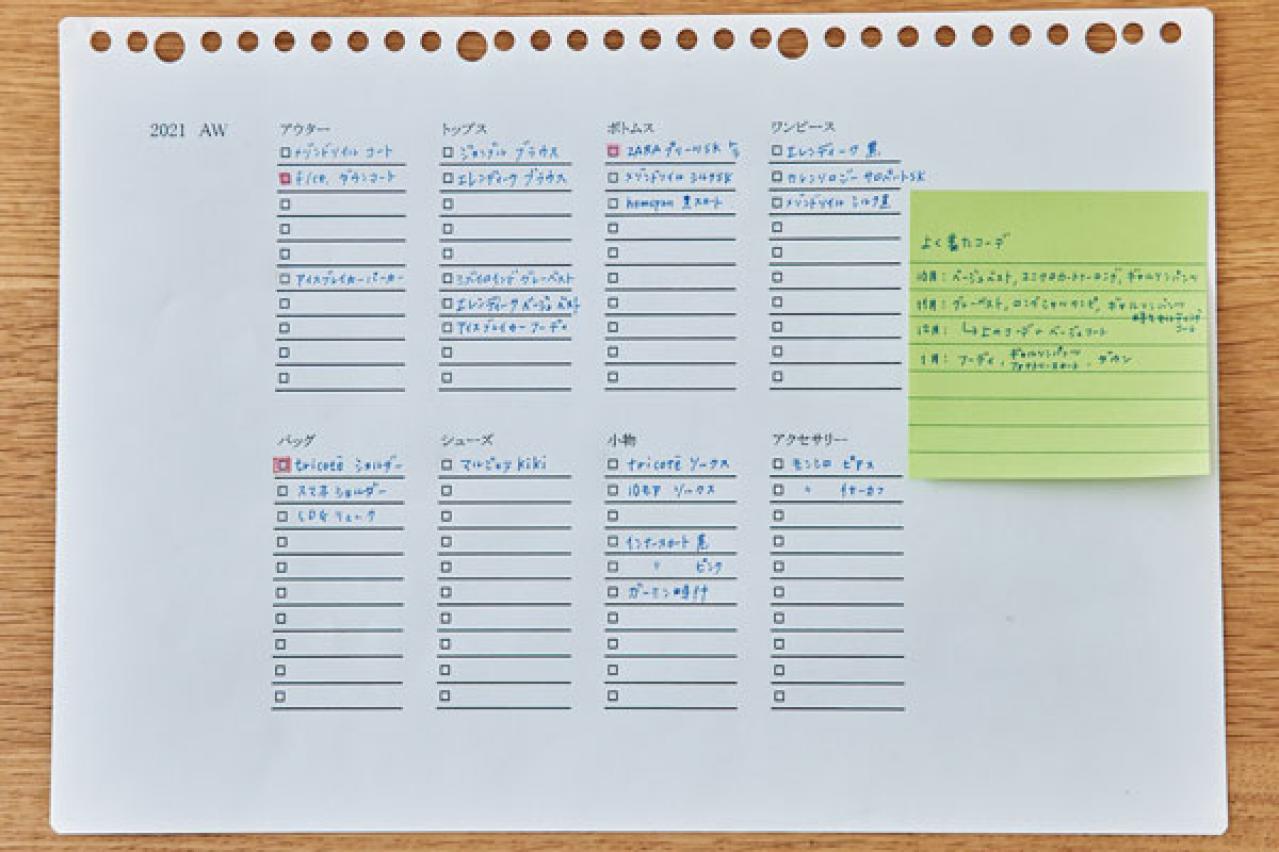 2021 AW
アウター
メゾンドソイル コート
f/ce. ダウンコート
アイスブレイカーパーカー
トップス
ジョンブル ブラウス
エレンディーク ブラウス
ミズイロインド グレーベスト
エレンディーク ベージュベスト
アイスブレイカー フーディ
ボトムス
ZARA プリーツSK
メゾンドソイル シルクSK
homspun 黒スカート
ワンピース
エレンディーク 黒
カレンソロジー サロペートSK
メゾンドソイル シルク黒
よく着たコーデ
10月：ベージュベスト,
11月：グレーベスト, ロング
12月：↳上のコーデ+ベージュコート
1月：フーディ, ギャルソンパンツ ダウン
バッグ
tricoté ショルダー
スマホショルダー
CDG リュック
シューズ
マルジェラ kiki
小物
tricoté ソックス
10モア ソックス
インナースカート 黒
〃 ピンク
ガーミン時計
アクセサリー
モンシロ ピアス
〃 イヤーカフ